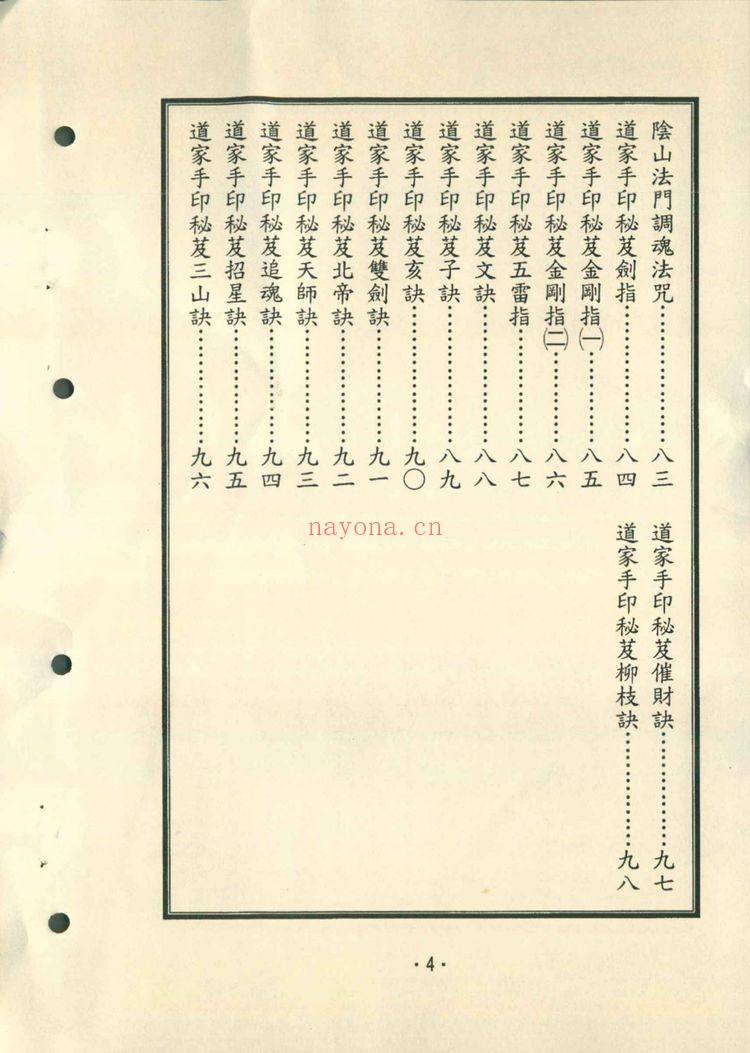 陰山法門調魂法咒………………八三
道家手印秘芨劍指………………八四
道家手印秘芨金剛指㈠…………八五
道家手印秘芨金剛指㈡…………八六
道家手印秘芨五雷指……………八七
道家手印秘芨文訣………………八八
道家手印秘芨子訣………………八九
道家手印秘芨亥訣………………九〇
道家手印秘芨雙劍訣……………九一
道家手印秘芨北帝訣……………九二
道家手印秘芨天師訣……………九三
道家手印秘芨追魂訣……………九四
道家手印秘芨招星訣……………九五
道家手印秘芨三山訣……………九六
道家手印秘芨催財訣……………九七
道家手印秘芨柳枝訣……………九八
nayona.cn
·4·